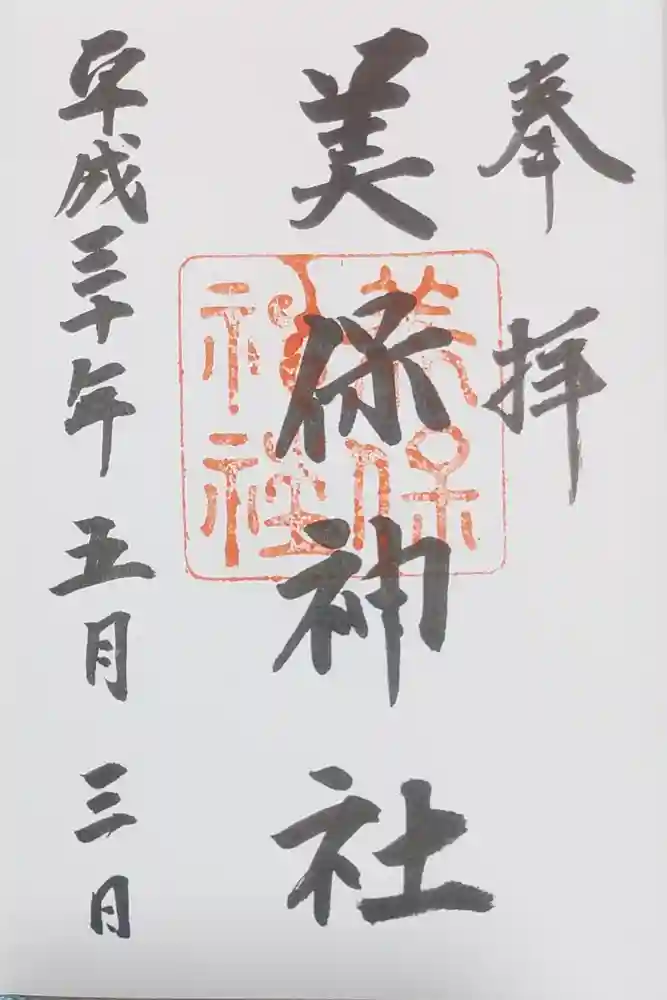 奉拝
美保神社
美保神社
平成三十年五月三日